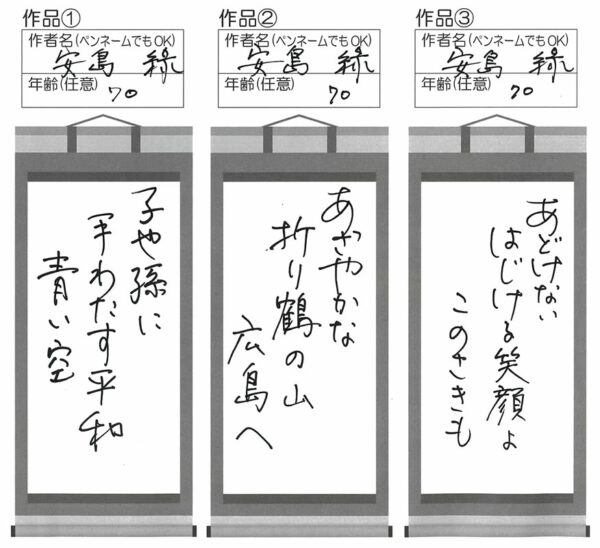 作品①
作者名(ペンネームでもOK)
安島 緑
年齢(任意)
70
子や孫に
手わたす平和
青い空
作品②
作者名(ペンネームでもOK)
安島 緑
年齢(任意)
70
あざやかな
折り鶴の山
広島へ
作品③
作者名(ペンネームでもOK)
安島 緑
年齢(任意)
70
あどけない
はじける笑顔よ
このさきも